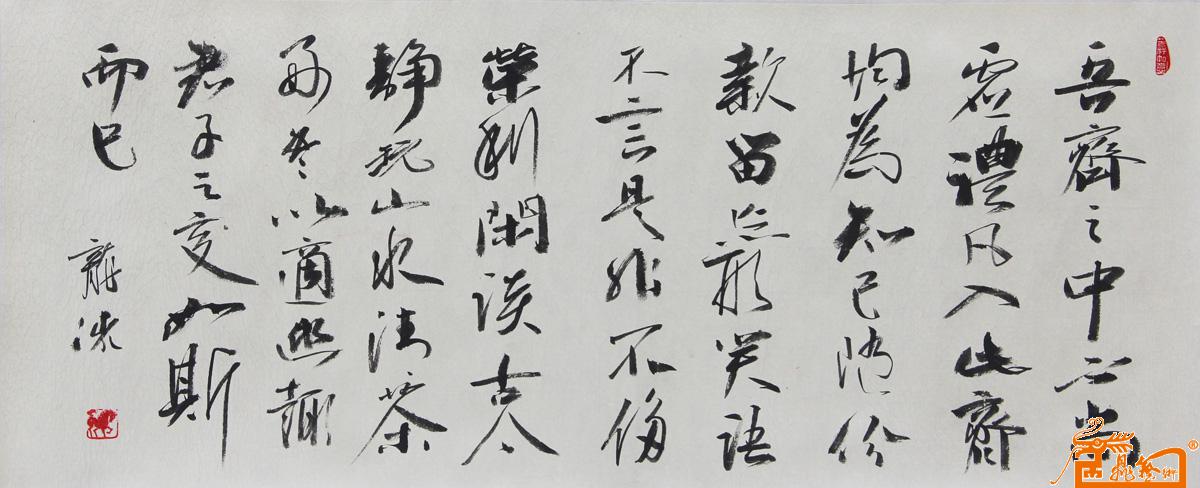 吾齋之中不尚
虛禮凡入此齋
均為知己隨份
款留忘形笑語
不言是非不侈
榮利閑談古今
靜玩山水清茶
好琴以適幽趣
君子之交如斯
而已